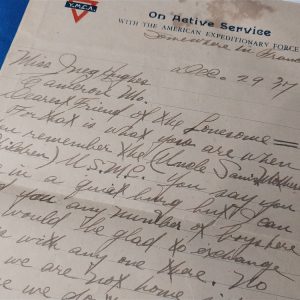 Y.M.C.A.
On Active Service
WITH THE AMERICAN EXPEDITIONARY FORCE
Somewhere in France
Dec. 29
Miss Hughes
Mo.
Dearest Friend of the Lonesome =
For that is what you are when
you remember the (Uncle Sam's
Children) U.S.M.C. You say you
in a quiet but I can
you any number of boys here
would be glad to exchange
with any one there. No
we are not home
we do